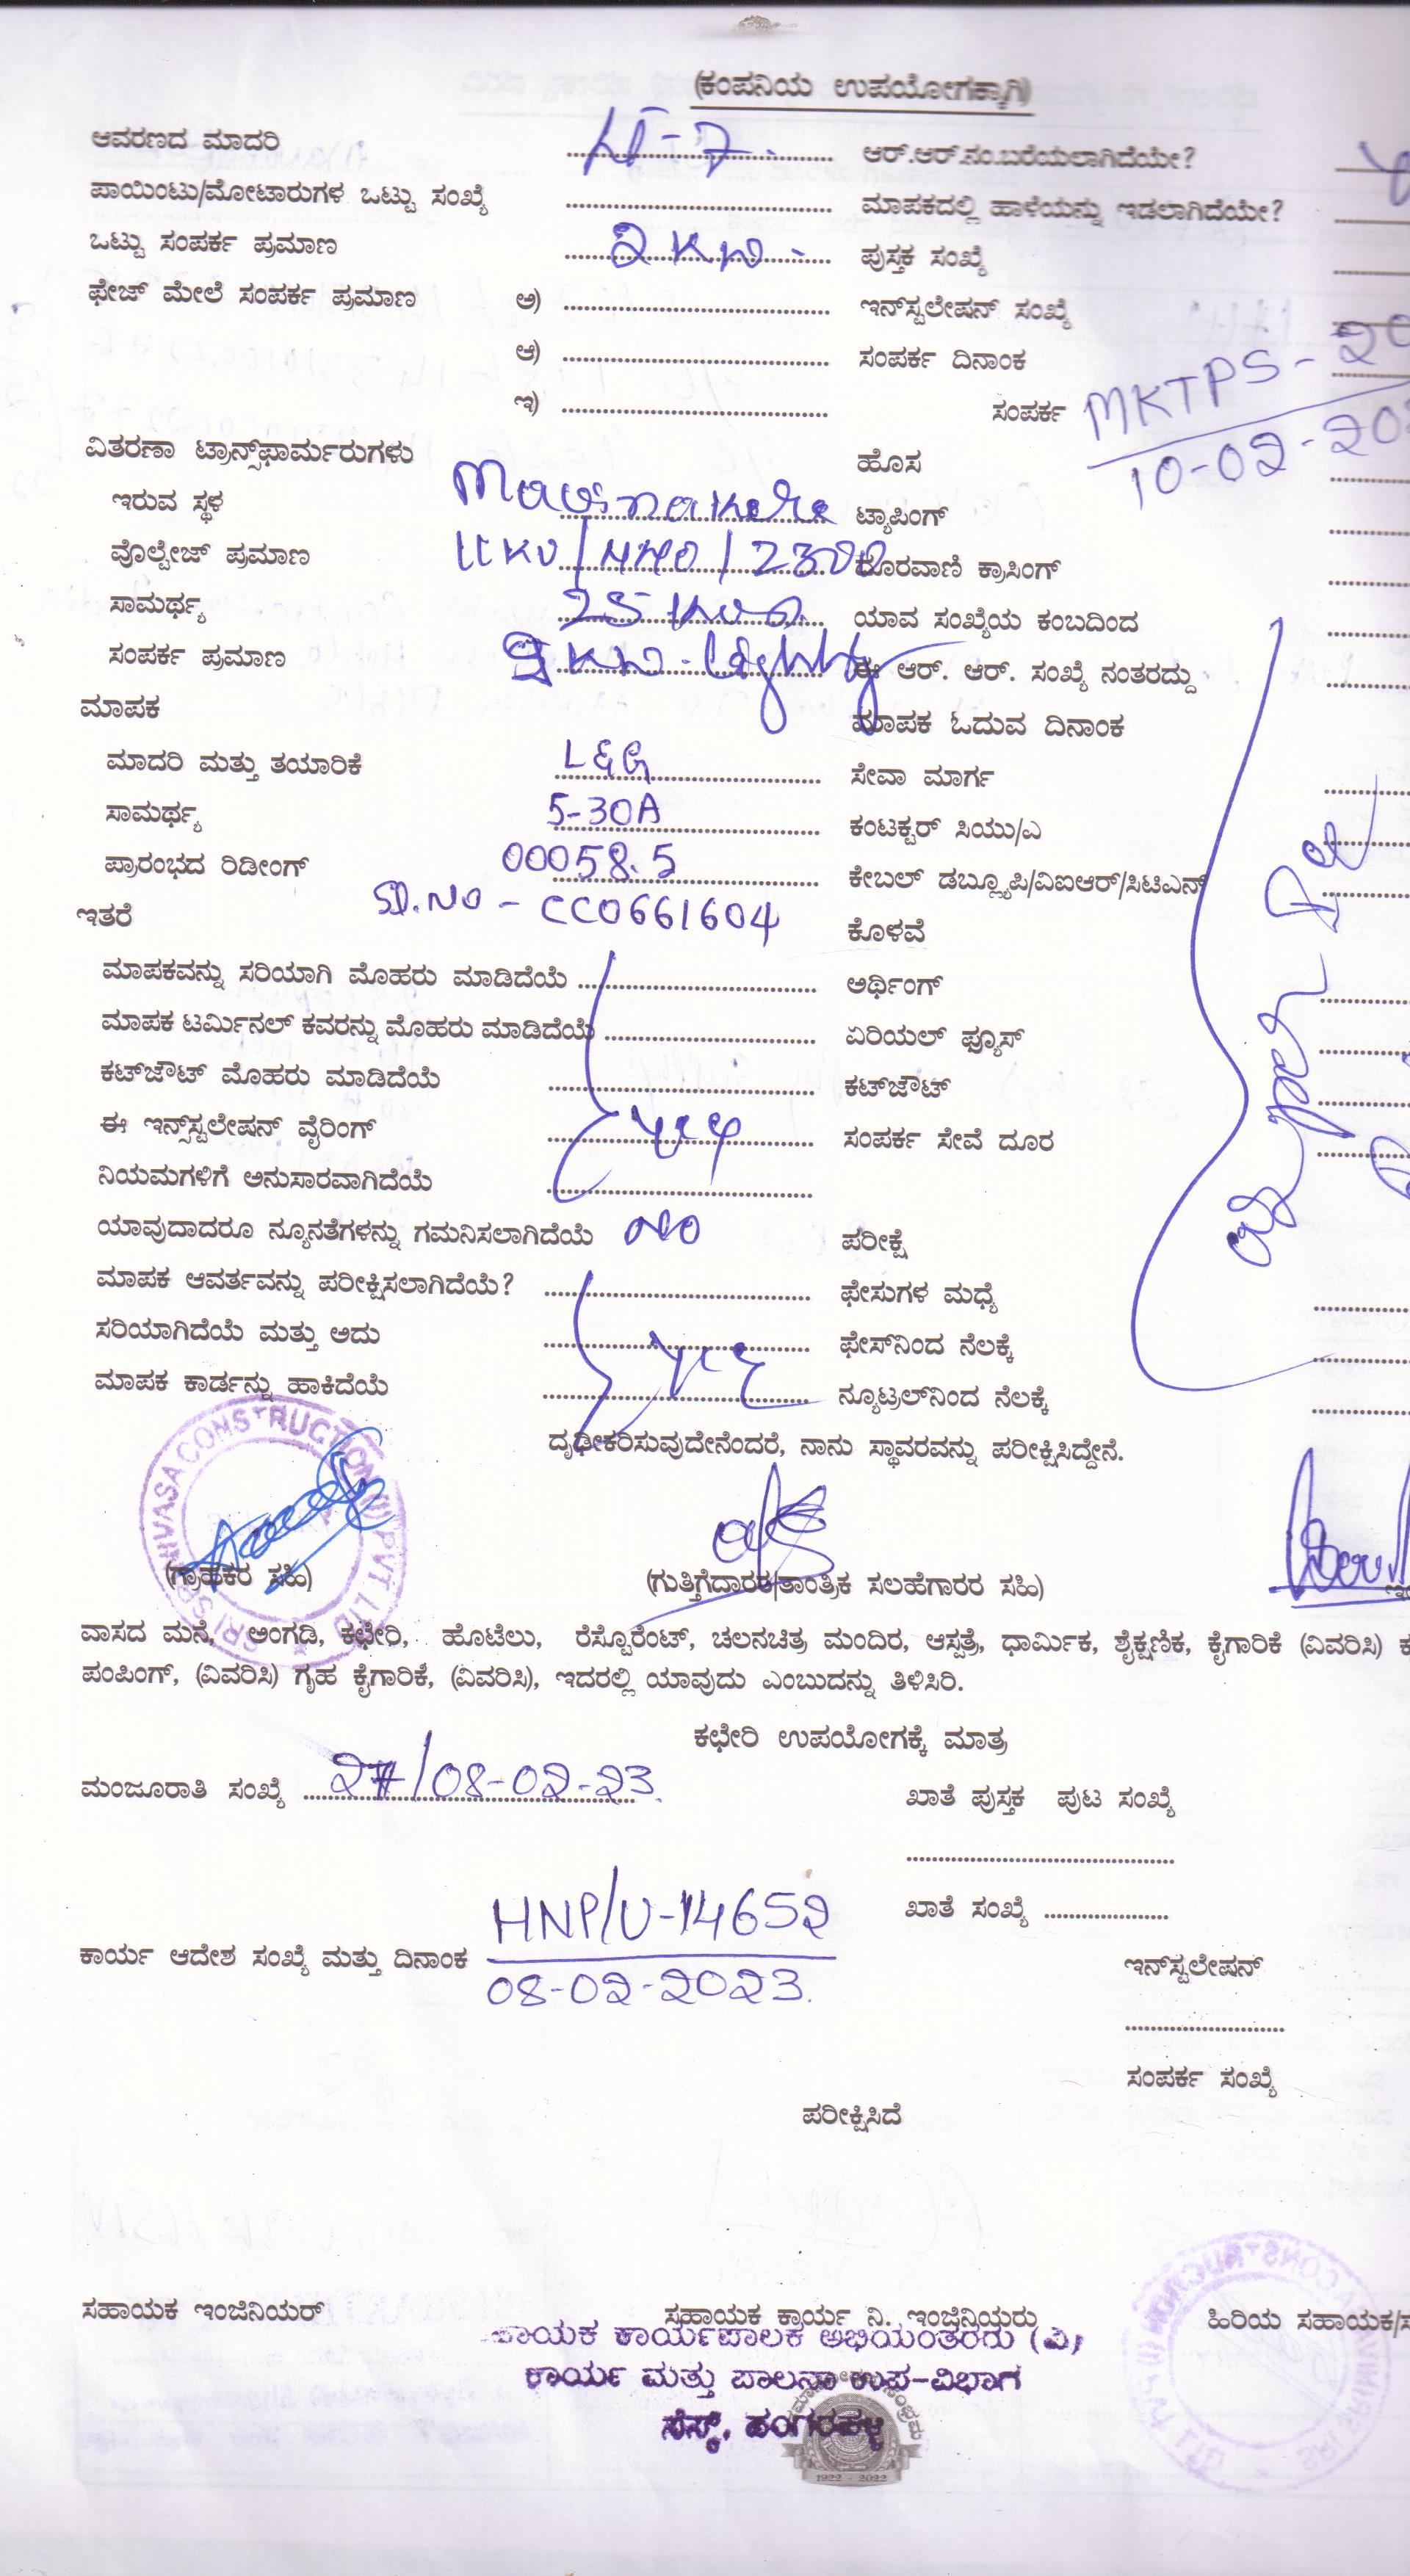 (ಕಂಪನಿಯ ಉಪಯೋಗಕ್ಕಾಗಿ)
ಆವರಣದ ಮಾದರಿ LT-7. ಆರ್.ಆರ್.ನಂ.ಬರೆಯಲಾಗಿದೆಯೇ?
ಪಾಯಿಂಟು/ಮೋಟಾರುಗಳ ಒಟ್ಟು ಸಂಖ್ಯೆ ಮಾಪಕದಲ್ಲಿ ಹಾಳೆಯನ್ನು ಇಡಲಾಗಿದೆಯೇ?
ಒಟ್ಟು ಸಂಪರ್ಕ ಪ್ರಮಾಣ 2 KW. ಪುಸ್ತಕ ಸಂಖ್ಯೆ
ಫೇಜ್ ಮೇಲೆ ಸಂಪರ್ಕ ಪ್ರಮಾಣ ಅ) ಇನ್‌ಸ್ಟಲೇಷನ್ ಸಂಖ್ಯೆ
ಆ) ಸಂಪರ್ಕ ದಿನಾಂಕ
ಇ) ಸಂಪರ್ಕ MKTPS-
10-02-
ವಿತರಣಾ ಟ್ರಾನ್ಸ್‌ಫಾರ್ಮರುಗಳು ಹೊಸ
ಇರುವ ಸ್ಥಳ Mavinakere ಟ್ಯಾಪಿಂಗ್
ವೊಲ್ಟೇಜ್ ಪ್ರಮಾಣ 11KV/440/230 ದೂರವಾಣಿ ಕ್ರಾಸಿಂಗ್
ಸಾಮರ್ಥ್ಯ 25 KVA. ಯಾವ ಸಂಖ್ಯೆಯ ಕಂಬದಿಂದ
ಸಂಪರ್ಕ ಪ್ರಮಾಣ 2 KW. ಈ ಆರ್. ಆರ್. ಸಂಖ್ಯೆ ನಂತರದ್ದು
ಮಾಪಕ ಮಾಪಕ ಓದುವ ದಿನಾಂಕ
ಮಾದರಿ ಮತ್ತು ತಯಾರಿಕೆ L&G ಸೇವಾ ಮಾರ್ಗ
ಸಾಮರ್ಥ್ಯ 5-30A ಕಂಟಕ್ಟರ್ ಸಿಯು/ಎ
ಪ್ರಾರಂಭದ ರಿಡೀಂಗ್ 00058.5 ಕೇಬಲ್ ಡಬ್ಲ್ಯೂಪಿ/ವಿಐಆರ್/ಸಿಟಿಎನ್
ಇತರೆ Sl.NO - CC0661604 ಕೊಳವೆ
ಮಾಪಕವನ್ನು ಸರಿಯಾಗಿ ಮೊಹರು ಮಾಡಿದೆಯೆ ಅರ್ಥಿಂಗ್
ಮಾಪಕ ಟರ್ಮಿನಲ್ ಕವರನ್ನು ಮೊಹರು ಮಾಡಿದೆಯೆ ಏರಿಯಲ್ ಫ್ಯೂಸ್
ಕಟ್‌ಔಟ್ ಮೊಹರು ಮಾಡಿದೆಯೆ ಕಟ್‌ಔಟ್
ಈ ಇನ್ಸ್‌ಸ್ಟಲೇಷನ್ ವೈರಿಂಗ್ yes ಸಂಪರ್ಕ ಸೇವೆ ದೂರ
ನಿಯಮಗಳಿಗೆ ಅನುಸಾರವಾಗಿದೆಯೆ
ಯಾವುದಾದರೂ ನ್ಯೂನತೆಗಳನ್ನು ಗಮನಿಸಲಾಗಿದೆಯೆ NO ಪರೀಕ್ಷೆ
ಮಾಪಕ ಆವರ್ತವನ್ನು ಪರೀಕ್ಷಿಸಲಾಗಿದೆಯೆ? ಫೇಸುಗಳ ಮಧ್ಯೆ
ಸರಿಯಾಗಿದೆಯೆ ಮತ್ತು ಅದು yes ಫೇಸ್‌ನಿಂದ ನೆಲಕ್ಕೆ
ಮಾಪಕ ಕಾರ್ಡನ್ನು ಹಾಕಿದೆಯೆ ನ್ಯೂಟ್ರಲ್‌ನಿಂದ ನೆಲಕ್ಕೆ
ದೃಢೀಕರಿಸುವುದೇನೆಂದರೆ, ನಾನು ಸ್ಥಾವರವನ್ನು ಪರೀಕ್ಷಿಸಿದ್ದೇನೆ.
SRI SRINIVASA CONSTRUCTION (I) PVT LTD
(ಗ್ರಾಹಕರ ಸಹಿ) (ಗುತ್ತಿಗೆದಾರರ/ತಾಂತ್ರಿಕ ಸಲಹೆಗಾರರ ಸಹಿ)
ವಾಸದ ಮನೆ, ಅಂಗಡಿ, ಕಛೇರಿ, ಹೊಟೆಲು, ರೆಸ್ಟೊರೆಂಟ್, ಚಲನಚಿತ್ರ ಮಂದಿರ, ಆಸ್ಪತ್ರೆ, ಧಾರ್ಮಿಕ, ಶೈಕ್ಷಣಿಕ, ಕೈಗಾರಿಕೆ (ವಿವರಿಸಿ)
ಪಂಪಿಂಗ್, (ವಿವರಿಸಿ) ಗೃಹ ಕೈಗಾರಿಕೆ, (ವಿವರಿಸಿ), ಇದರಲ್ಲಿ ಯಾವುದು ಎಂಬುದನ್ನು ತಿಳಿಸಿರಿ.
ಕಛೇರಿ ಉಪಯೋಗಕ್ಕೆ ಮಾತ್ರ
ಮಂಜೂರಾತಿ ಸಂಖ್ಯೆ 27/08-02-23. ಖಾತೆ ಪುಸ್ತಕ ಪುಟ ಸಂಖ್ಯೆ
ಖಾತೆ ಸಂಖ್ಯೆ
ಕಾರ್ಯ ಆದೇಶ ಸಂಖ್ಯೆ ಮತ್ತು ದಿನಾಂಕ HNP/U-14652
08-02-2023.
ಇನ್‌ಸ್ಟಲೇಷನ್
ಸಂಪರ್ಕ ಸಂಖ್ಯೆ
ಪರೀಕ್ಷಿಸಿದೆ
ಸಹಾಯಕ ಇಂಜಿನಿಯರ್ ಸಹಾಯಕ ಕಾರ್ಯ ನಿ. ಇಂಜಿನಿಯರು ಹಿರಿಯ ಸಹಾಯಕ/
ಕಾರ್ಯಪಾಲಕ ಅಭಿಯಂತರರು (ವಿ)
ಕಾರ್ಯ ಮತ್ತು ಪಾಲನಾ ಉಪ-ವಿಭಾಗ
ಸೆಸ್ಕ್,
1922 - 2022